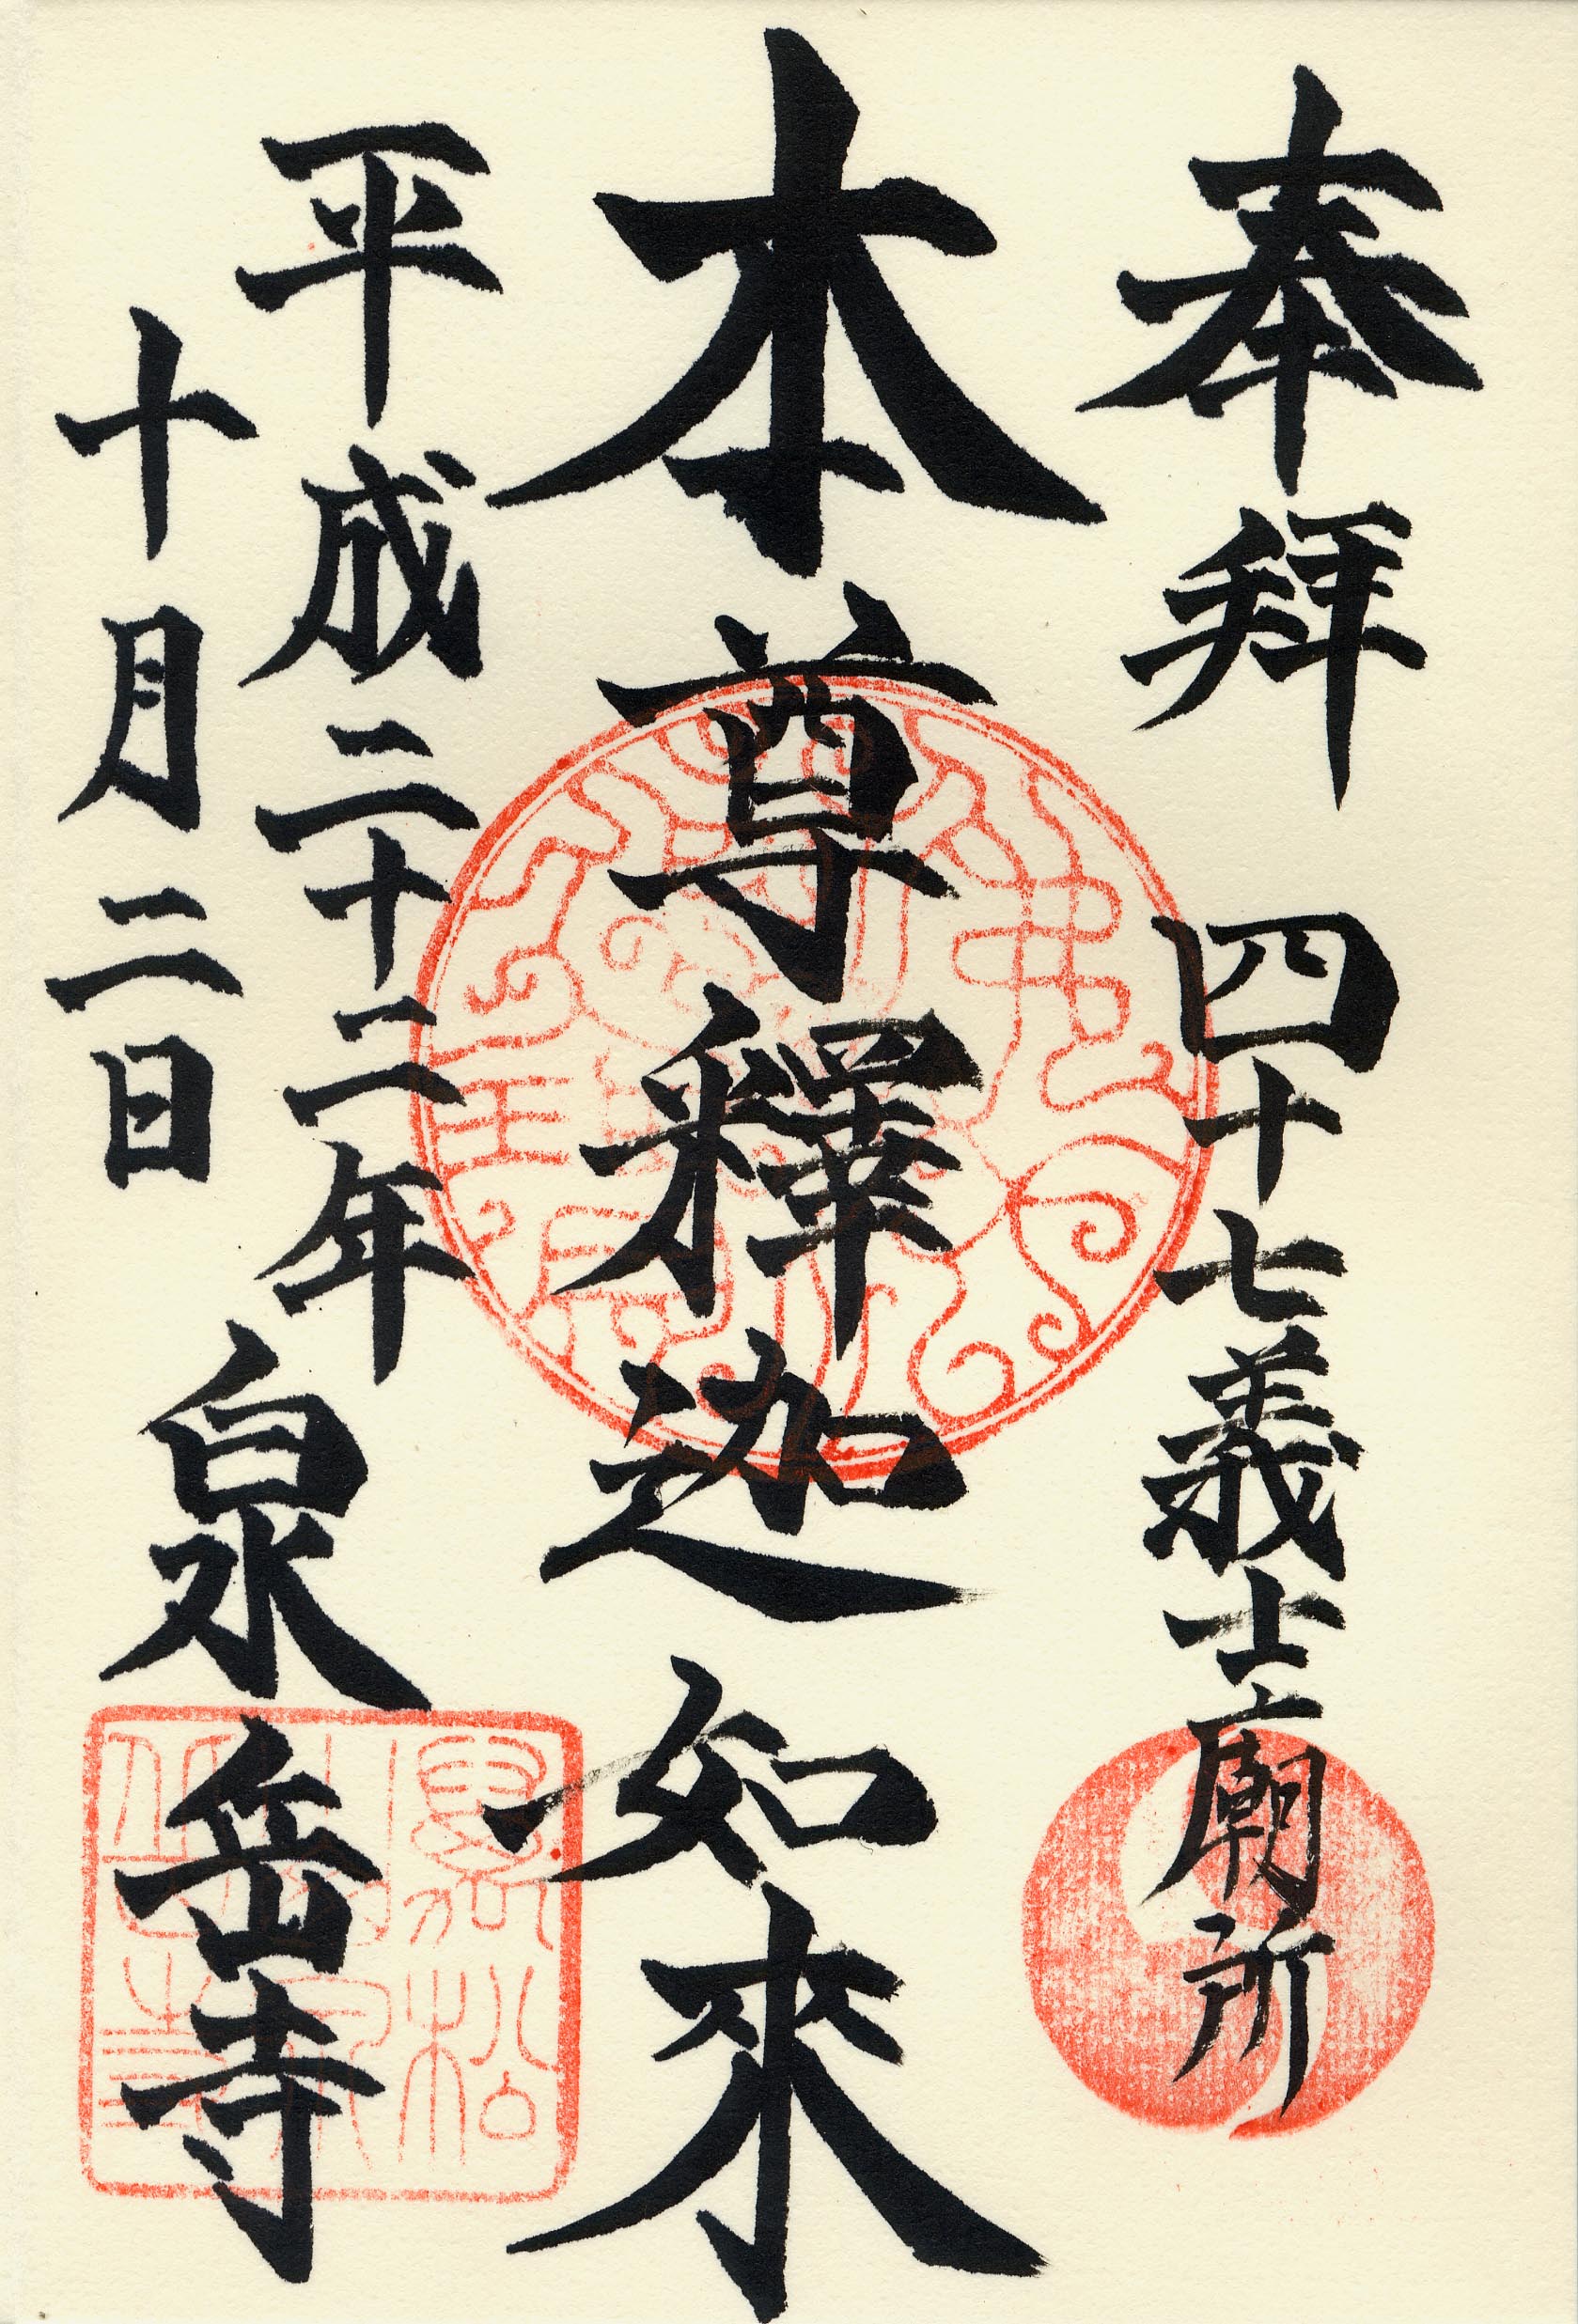 奉拜 四十七義士廟所
本尊釋迦如來
平成二十二年
十月二日
泉岳寺